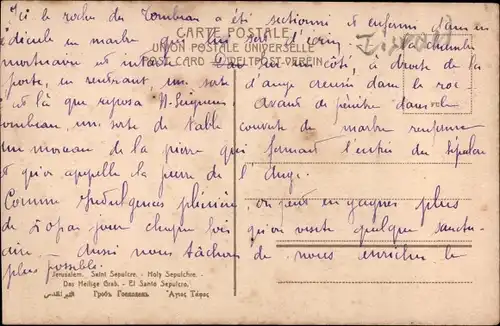 Ici le rocher du Tombeau a été sectionné et enfermé dans un
édicule en marbre qui lui sert d'écrin. La chambre
CARTE POSTALE
UNION POSTALE UNIVERSELLE
POST CARD WELTPOST-VEREIN
mortuaire est
Dans un côté, à droite de la
porte, en rentrant, une sorte d'auge creusée dans le roc
c'est là que reposa N. Seigneur
avant de pénétrer dans le
tombeau, une sorte de table couverte de marbre renferme
un morceau de la pierre qui fermait l'entrée du Sépulcre
et qu'on appelle la pierre de l'Ange.
Comme Indulgences plénières, on peut en gagner plus
de par jour chaque fois qu'on visite quelque sanctu-
aire - aussi nous tâchons de nous enrichir le
plus possible.
Jerusalem. Saint Sepulcre. - Holy Sepulchre. -
Das Heilige Grab. - El Santo Sepulcro.
القبر المقدس Гробъ Господень Ἅγιος Τάφος